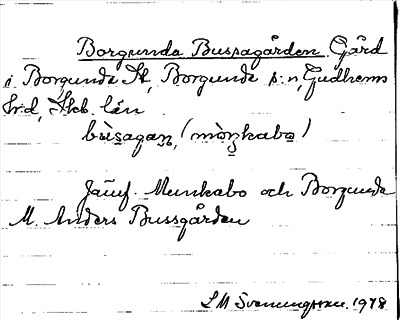 Borgunda Bussagården. Gård
i Borgunda St, Borgunda s:n, Gudhems
hrd, Skb. län
bùsagaṇ, (mòṇkabo)
Jämf. Munkabo och Borgunda
M. Anders Bussgården
L M Svenungsson. 1978